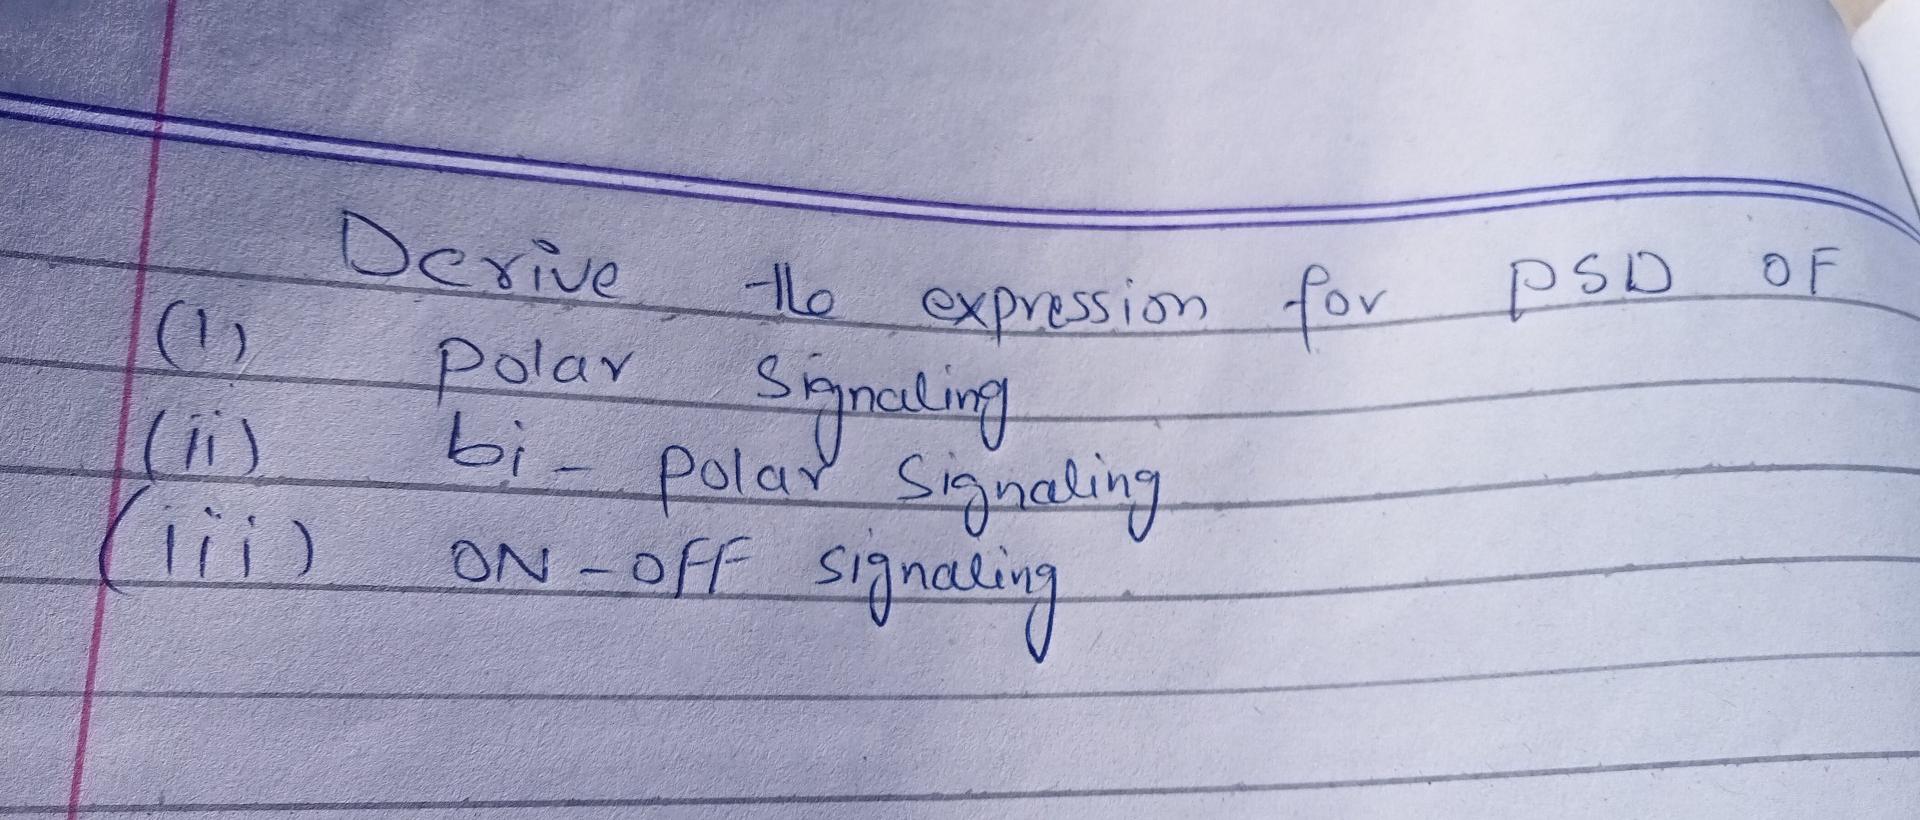 Derive the expression for PSD OF
(i) Polar Signaling
(ii) bi-Polar Signaling
(iii) ON-OFF signaling